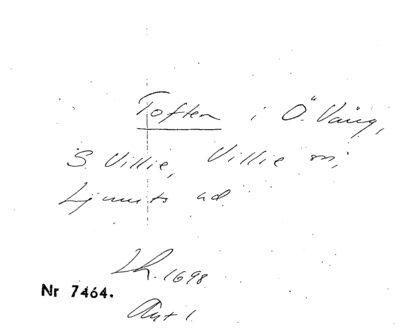 Toften i Ö. Vång,
S. Villie, Villie sn,
Ljunits hd
Lh. 1698
Nr 7464.
Akt 1